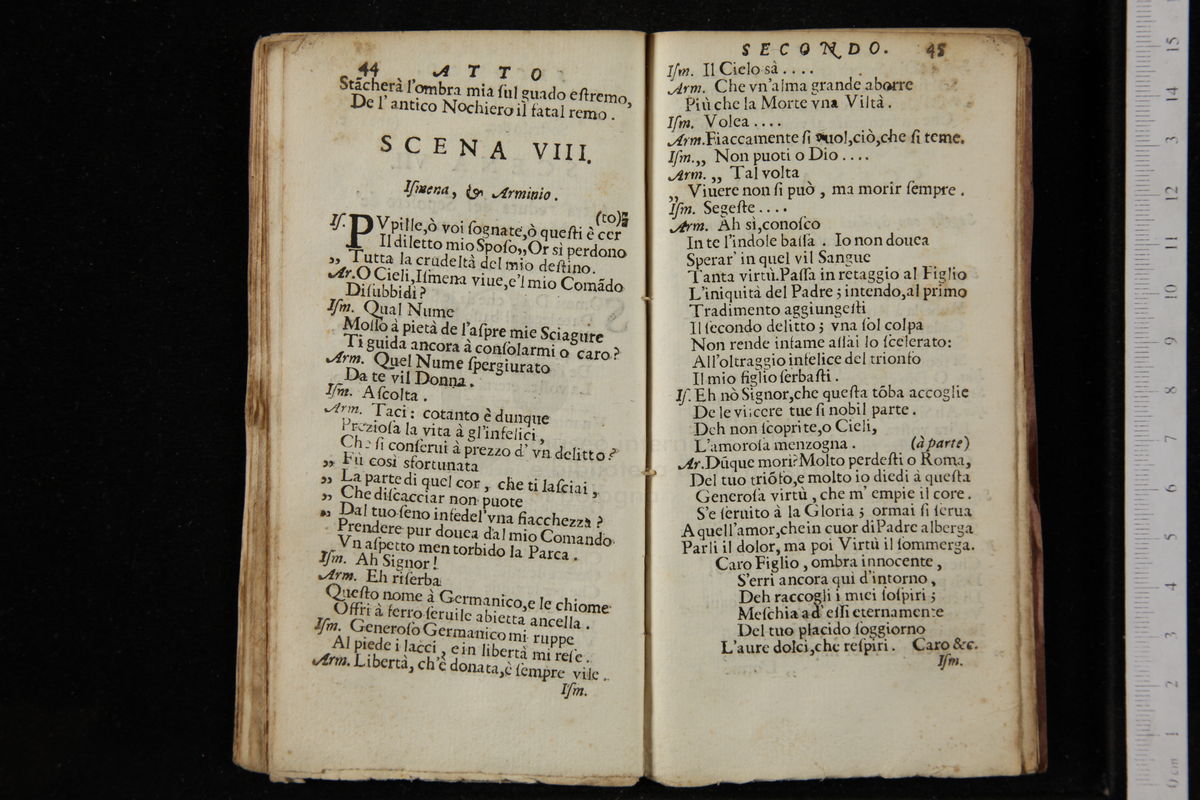 44 ATTO
Stãcherà l'ombra mia ſul guado eſtremo,
De l' antico Nochiero il fatal remo .
SCENA VIII.
Iſmena, & Arminio.
(to)
Iſ. PVpille,ò voi ſognate,ò queſti è cer
Il diletto mio Spoſo,,Or sì perdono
,, Tutta la crudeltà del mio deſtino.
Ar.O Cieli,Iſmena viue,e'l mio Comãdo
Diſubbidì?
Iſm. Qual Nume
Moſſo à pietà de l'aſpre mie Sciagure
Ti guida ancora à conſolarmi o caro?
Arm. Quel Nume ſpergiurato
Da te vil Donna.
Iſm. Aſcolta .
Arm. Taci: cotanto è dunque
Prezioſa la vita à gl'infelici,
Che ſi conſerui à prezzo d' vn delitto?
,, Fù così sfortunata
,, La parte di quel cor , che ti laſciai ,
,, Che diſcacciar non puote
,, Dal tuo ſeno infedel'vna fiacchezza ?
Prendere pur douea dal mio Comando
Vn aſpetto men torbido la Parca .
Iſm. Ah Signor!
Arm. Eh riſerba
Queſto nome à Germanico,e le chiome
Offri à ferro ſeruile abietta ancella .
Iſm. Generoſo Germanico mi ruppe
Al piede i lacci , e in libertà mi reſe .
Arm. Libertà, ch'è donata,è ſempre vile .
Iſm.
SECONDO. 45
Iſm. Il Cielo sà . . . .
Arm. Che vn'alma grande aborre
Più che la Morte vna Viltà .
Iſm. Volea . . . .
Arm.Fiaccamente ſi vuol,ciò,che ſi teme.
Iſm.,, Non puoti o Dio . . . .
Arm. ,, Tal volta
,, Viuere non ſi può , ma morir ſempre .
Iſm. Segeſte . . . .
Arm. Ah sì,conoſco
In te l'indole baſſa . Io non douea
Sperar' in quel vil Sangue
Tanta virtù.Paſſa in retaggio al Figlio
L'iniquità del Padre ; intendo,al primo
Tradimento aggiungeſti
Il ſecondo delitto ; vna ſol colpa
Non rende infame aſſai lo ſcelerato:
All'oltraggio infelice del trionfo
Il mio figlio ſerbaſti .
Iſ. Eh nò Signor,che queſta tõba accoglie
De le viſcere tue ſi nobil parte .
Deh non ſcoprite,o Cieli,
L'amoroſa menzogna . (à parte)
Ar.Dũque morì?Molto perdeſti o Roma,
Del tuo triõfo,e molto io diedi à queſta
Generoſa virtù , che m' empie il core .
S'e ſeruito à la Gloria ; ormai ſi ſerua
A quell'amor,che in cuor di Padre alberga
Parli il dolor, ma poi Virtù il ſommerga.
Caro Figlio , ombra innocente ,
S'erri ancora quì d'intorno ,
Deh raccogli i miei ſoſpiri ;
Meſchia ad' eſſi eternamente
Del tuo placido ſoggiorno
L'aure dolci,che reſpiri . Caro &c.
Iſm.